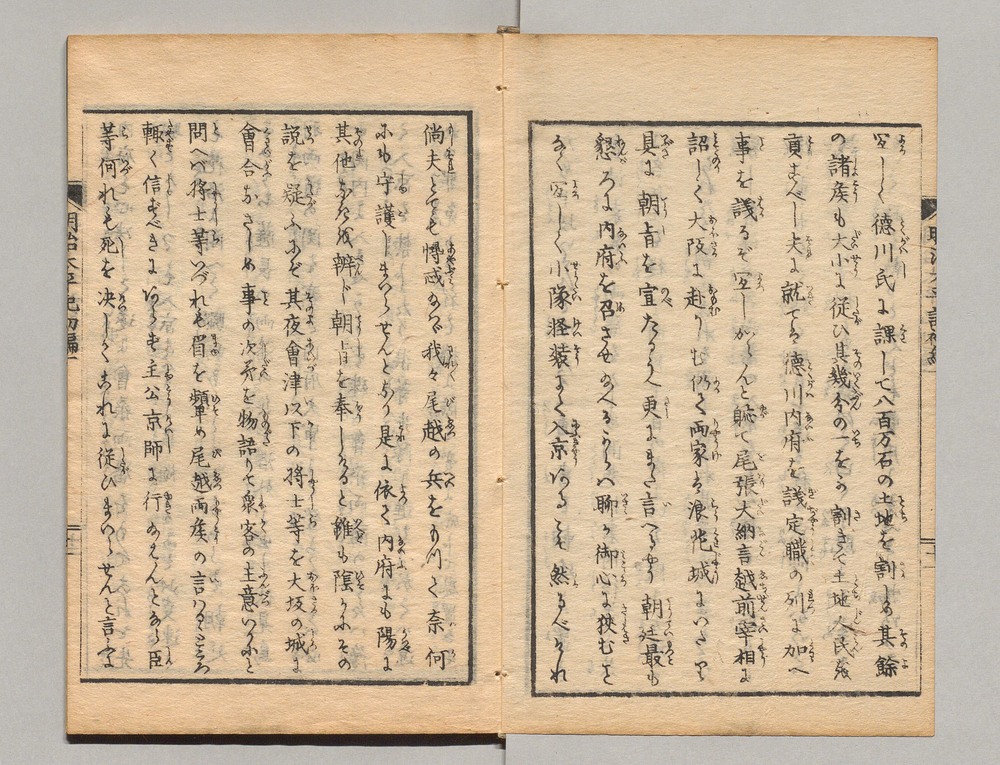 宜しく徳川氏に課して八百万石の土地を割しめ其餘
の諸矦も大小に従ひ其幾分の一をか割きて土地人民を
貢すべし夫に就てる徳川内府を議定職の列に加へ
事を議るぞ宜しからんと軈て尾張大納言越前宰相に
詔しく大阪に赴り仍て両家は浪花城にいたり
具に朝旨を宣たまへ更にまた言へるやう朝廷最も
懇ろに内府を召させ玉へるからハ聊か御心に狭むを
なく宜しく小隊軽装にて入京ある こそ然るべけれ
倘夫とても憚忌あらバ我々尾越の兵をもつて奈何
にも守護しまつらせんとあり是に依て内府にも陽に
其他なきを辨じ朝旨を奉しけると雖も陰かにその
説を疑ふにぞ其夜會津以下の将士等を大坂の城に
會合なさしめ事の次第を物語りて衆客の主意いかにと
問へバ将士等いづれも眉を顰め尾越両矦の言はるところ
輙く信ずべきにあらず主公京師に行玉はんとなら臣
等何れも死を决してこれに従ひまつらせんと言ふに
明治太平記初編